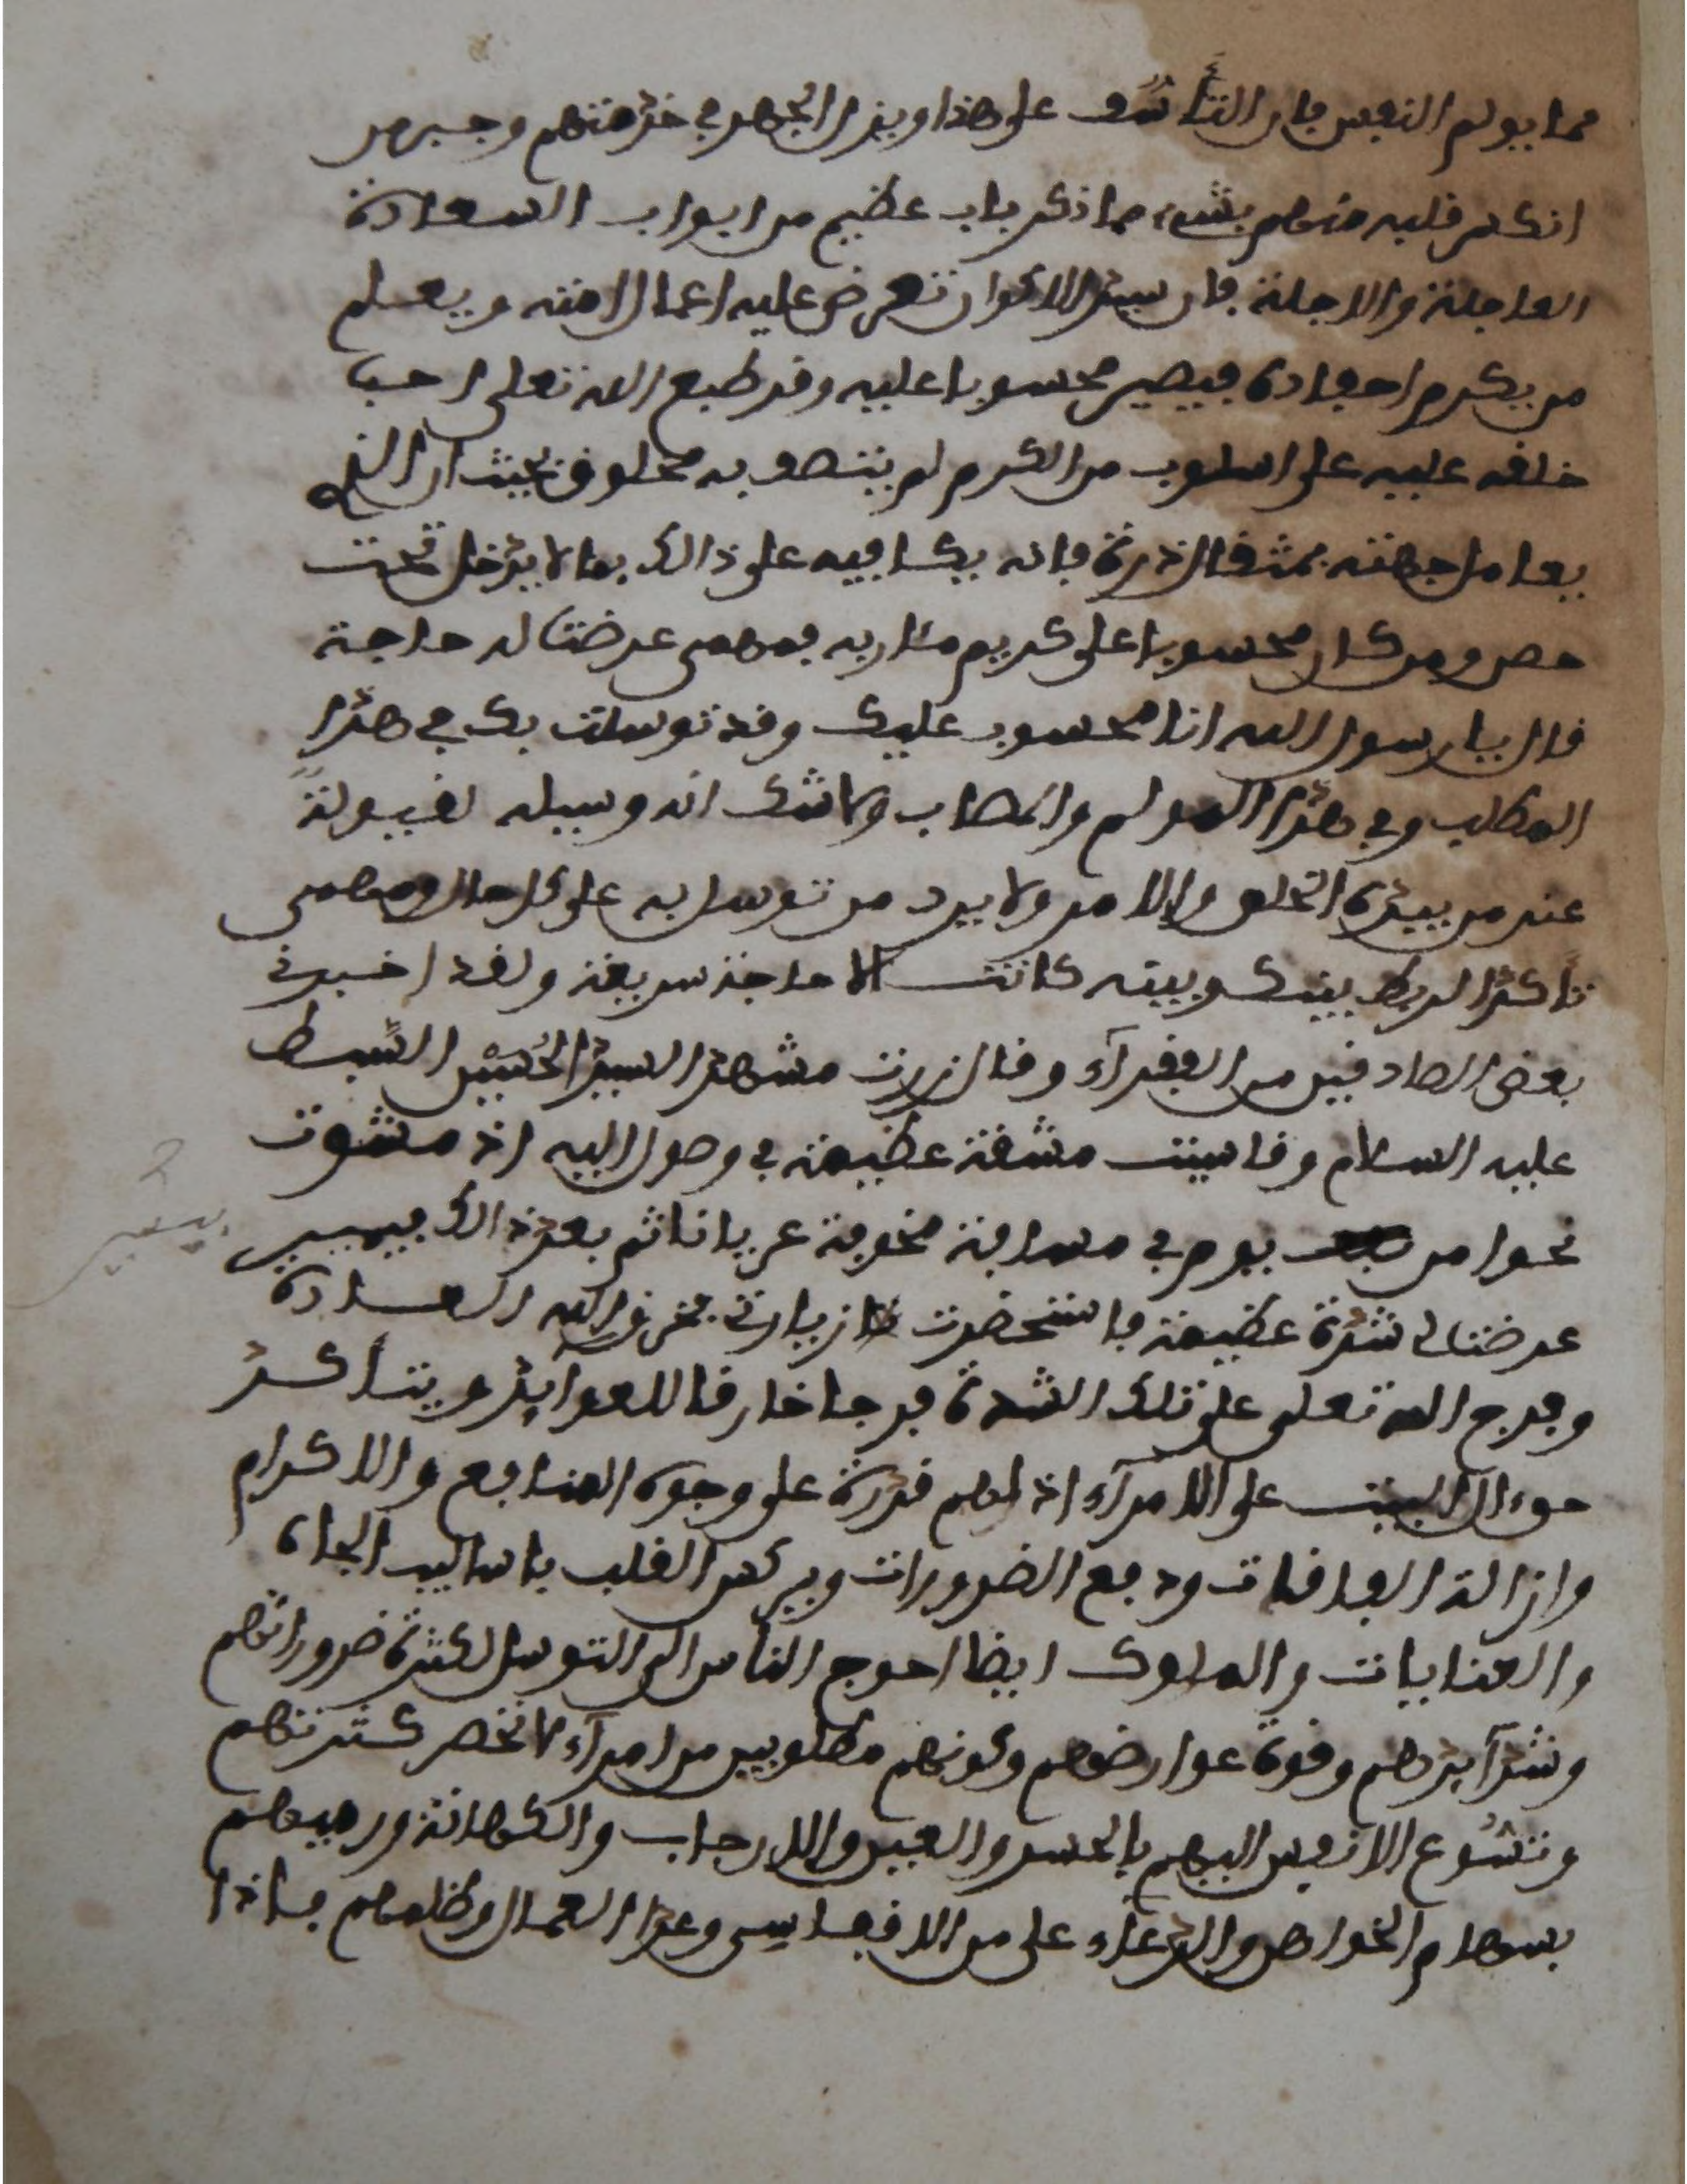 مما يولم النفس فان التأسف على هذا وبذل الجهد في خدمتهم وجبر من
انكسر قلبه منهم بشيء مما ذكر باب عظيم من ابواب السعادة
العاجلة والاجلة فان سيد الاكوان تعرض عليه اعمال امته ويعلم
من يكرم احفاده فيصير محسوبا عليه وقد طبع الله تعلى احب
خلقه عليه على اسلوب من الكرم لم يتصف به مخلوق بحيث ان
يعامل جهته بمثقال ذرة فانه يكافيه على ذالك بما لا يدخل تحت
حصر ومن كان محسوبا على كريم مثاريه فمهمى عرضت له حاجة
قال يا رسول الله انا محسوب عليك وقد توسلت بك في هذا
المطلب وفي هذا المولم والمصاب ولا شك انه وسيله لقبولة
عند من بيده الخلق والامر ولا يرد من توسل به على كل حال ومهمى
تأكد الربط بينك وبينه كانت الاحاجة سريعة ولقد اخبرني
بعض الصادقين من الفقرآء وقال زرت مشهد السيد الحسين السبط
عليه السلام وقاسيت مشقة عظيمة في وصول اليه اذ مشوت
نحوا من يوم في مسافة مخوفة عريانا ثم بعد ذالك بيسير
عرضت لي شدة عظيمة فاستحضرت زيارتي فخرق الله العادة
وفرج الله تعلى على تلك الشدة فرجا خارقا للعوايد ويتأكد
حق ال البيت على الامرآء اذ لهم قدرة على وجوه المنافع والاكرام
وازالة الفاقات ودفع الضرورات وبركهم القلب باساليب الجاه
والعنايات والملوك ايضا احوج الناس الى التوسل لكثرة ضروراتهم
وشدآيدهم وقوة عوارضهم وكونهم مطلوبين من امرآء لا تحصر كثرتهم
وتشوع الانفس اليهم بالحسد والعين والارجاب والكهانة ورميهم
بسهام الخواص والدعآء على من الاقفاسى وعدا العمال وظلمهم فاذا
بيسير